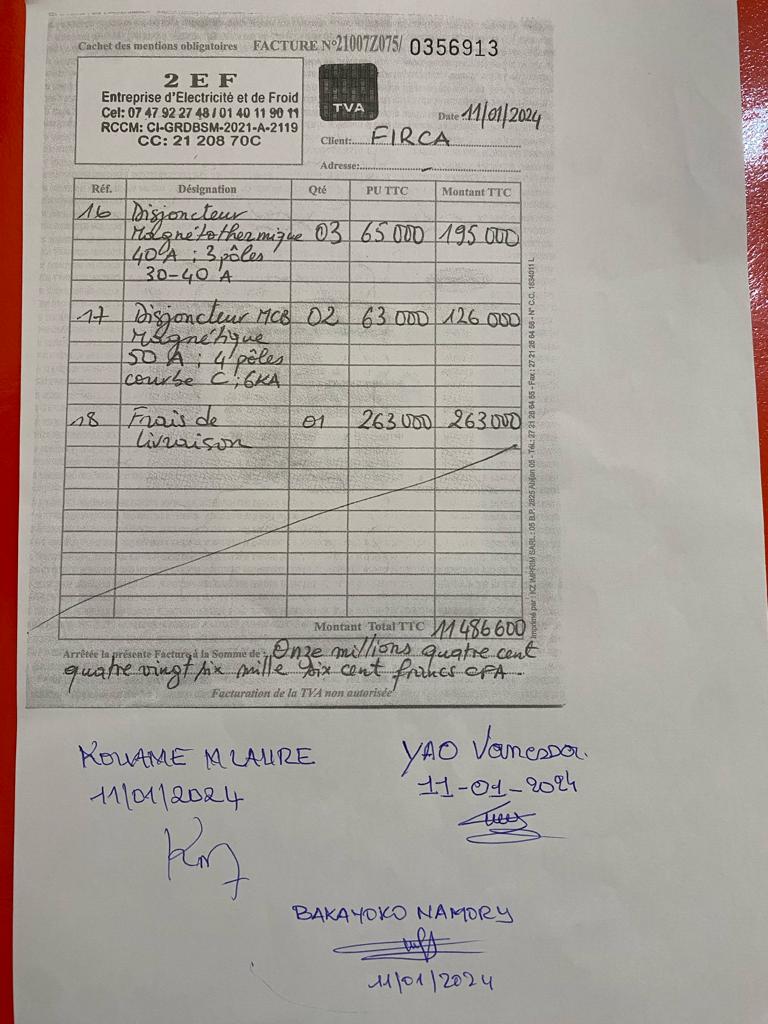 Cachet des mentions obligatoires FACTURE N°21007Z075/ 0356913
2 E F
Entreprise d'Electricité et de Froid
Cel: 07 47 92 27 48 / 01 40 11 90 11
RCCM: CI-GRDBSM-2021-A-2119
CC: 21 208 70C
TVA
Date 11/01/2024
Client: FIRCA
Adresse:
Réf. Désignation Qté PU TTC Montant TTC
16 Disjoncteur
Magnétothermique 03 65 000 195 000
40 A ; 3 pôles
30-40 A
17 Disjoncteur MCB 02 63 000 126 000
Magnétique
50 A ; 4 pôles
courbe C ; 6KA
18 Frais de 01 263 000 263 000
livraison
Montant Total TTC 11 486 600
Arrêtée la présente Facture à la Somme de : Onze millions quatre cent
quatre vingt six mille six cent francs CFA.
Facturation de la TVA non autorisée
Imprimé par : KZ IMPRIM SARL : 05 B.P. 2825 Abidjan 05 - Tél.: 27 21 26 64 55 - Fax : 27 21 26 64 56 - N° C.C. 1634011 L
KOUAME M LAURE
11/01/2024
YAO Vanessa
11-01-2024
BAKAYOKO NAMORY
11/01/2024